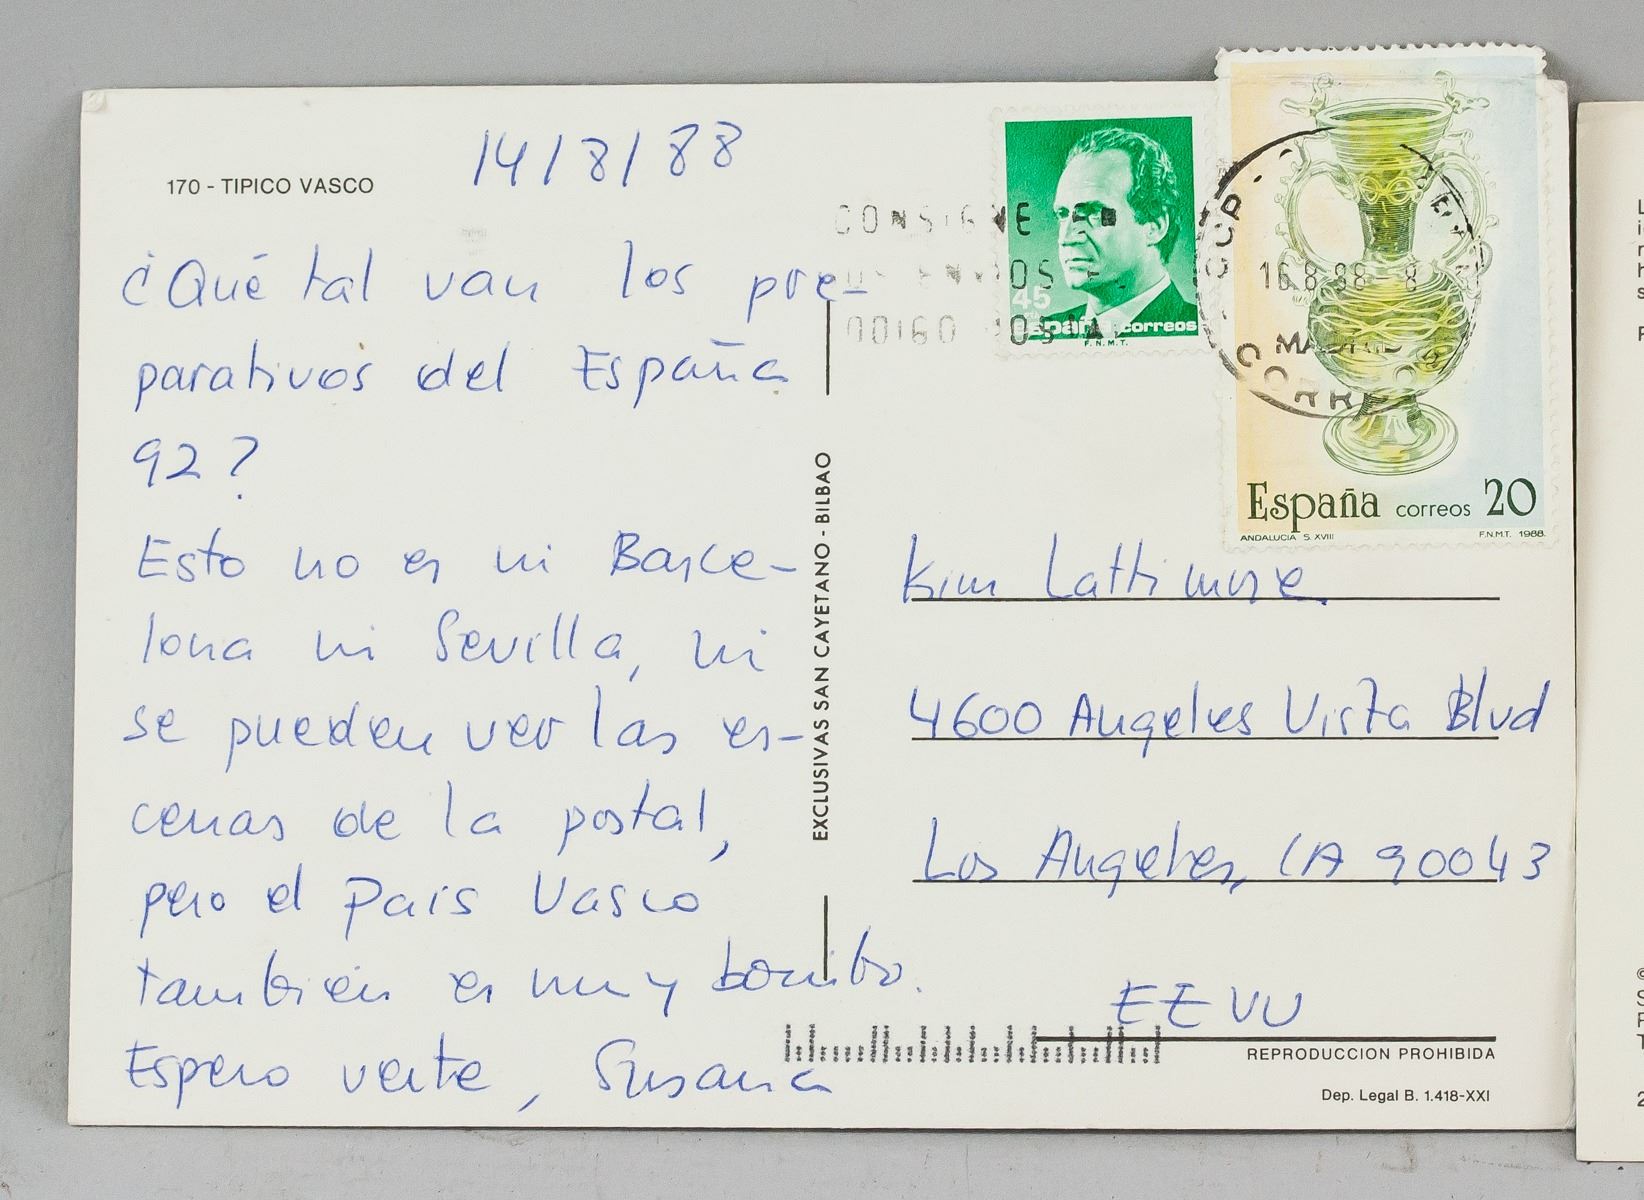 170 - TIPICO VASCO
14/8/88
¿Qué tal van los pre-
parativos del España
92?
Esto no es ni Barce-
lona ni Sevilla, ni
se pueden ver las es-
cenas de la postal,
pero el País Vasco
también es muy bonito.
Espero verte, Susana
EXCLUSIVAS SAN CAYETANO - BILBAO
CONSIGNE
45
España correos
F.N.M.T.
16.8.88
MADRID
España correos 20
ANDALUCIA S. XVIII F.N.M.T. 1988
Kim Lattimore
4600 Angeles Vista Blvd
Los Angeles, CA 90043
EEUU
REPRODUCCION PROHIBIDA
Dep. Legal B. 1.418-XXI